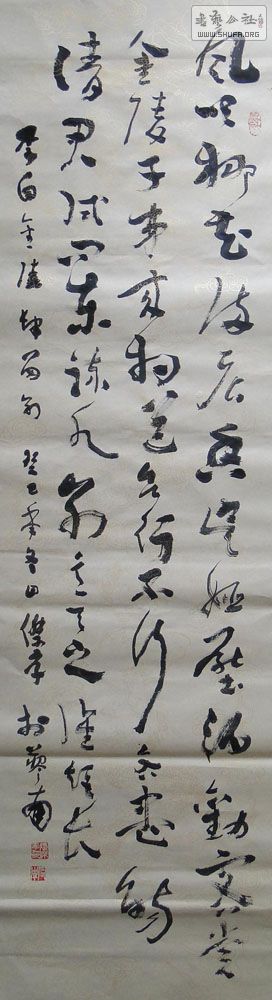 書藝公社
WWW.SHUFA.ORG
風吹柳花滿店香吳姬壓酒勸客嘗
金陵子弟来相送欲行不行各盡觴
請君試問東流水别意与之誰短長
李白金陵酒肆留别 癸巳年冬日傑 於蘇南